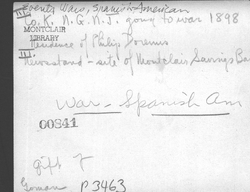 I. Events Wars, Spanish-American
Co. K. N.G.N.J. going to war 1898
MONTCLAIR
LIBRARY
II. Residence of Philip Doremus
III. Newsstand - site of Montclair Savings Ba
War - Spanish Am
00841
gift of
P3463